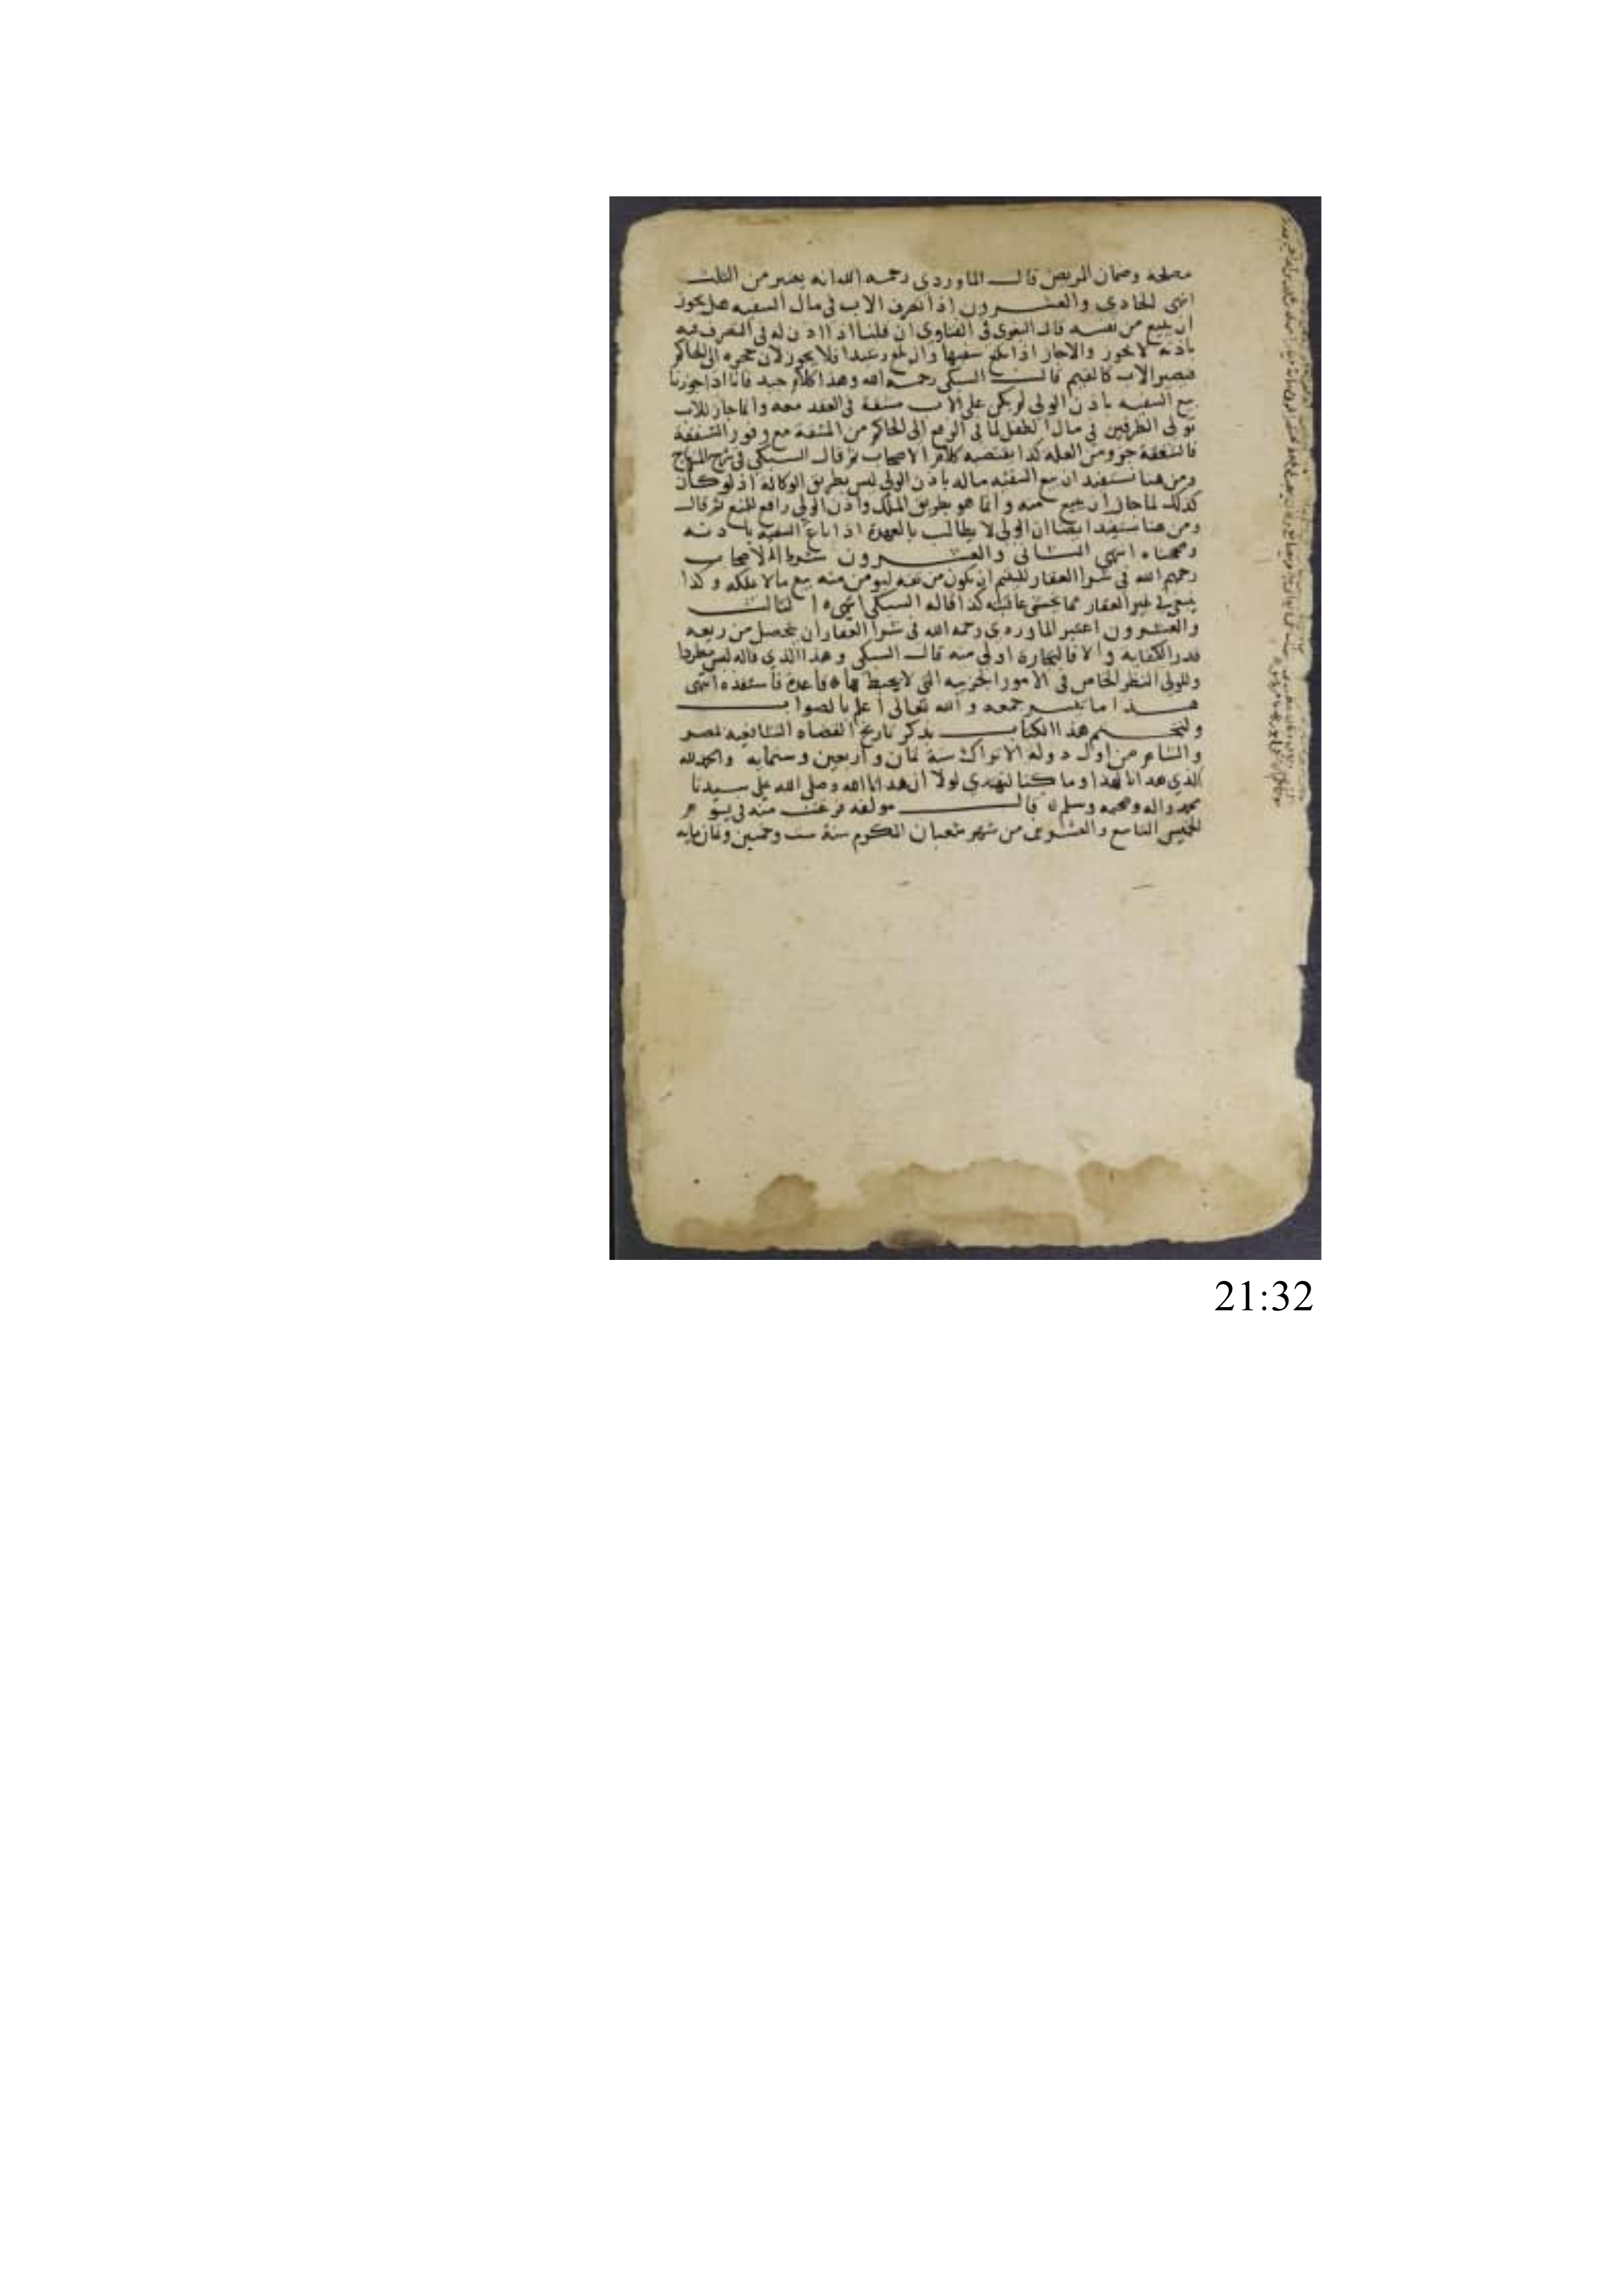 مصلحة وضمان المريض قال الماوردي رحمه الله انه يعتبر من الثلث
انتهى الحادي والعشرون اذا تصرف الاب في مال السفيه هل يجوز
ان يبيع من نفسه قال البغوي في الفتاوى ان قلنا اذا اذن له في التصرف فيه
باذنه لا يجوز والا جاز اذا بلغ سفيها وان بلغ رشيدا فلا يجوز لان حجره الى الحاكم
فيصير الاب كالقيم قال السبكي رحمه الله وهذا كلام جيد فانا اذا جوزنا
بيع السفيه باذن الولي لم يكن على الاب مشقة في العقد معه وانما جاز للاب
تولي الطرفين في مال الطفل لما في الرفع الى الحاكم من المشقة مع وفور الشفقة
فالشفقة جزو من العلة كذا يقتضيه كلام الاصحاب ثم قال السبكي في شرح المنهاج
ومن هنا تستفيد ان بيع السفيه ماله باذن الولي ليس بطريق الوكالة اذ لو كان
كذلك لما جاز ان يبيع منه وانما هو بطريق الملك واذن الولي رافع للمنع ثم قال
ومن هنا تستفيد ايضا ان الولي لا يطالب بالعهدة اذا باع السفيه باذنه
وصححناه انتهى الثاني والعشرون شرط الاصحاب
رحمهم الله في شرا العقار لليتيم ان يكون من ثقة ليومن منه بيع مالا يملكه وكذا
ينبغي في غير العقار مما يخشى عاقبته كذا قاله السبكي انتهى الثالث
والعشرون اعتبر الماوردي رحمه الله في شرا العقار ان يحصل من ريعه
قدر الكفاية والا فالتجارة اولى منه قال السبكي وهذا الذي قاله ليس مطردا
وللولي النظر الخاص في الامور الجزييه التي لا يحيط بها قاعدة فاستفده انتهى
هذا ما تيسر جمعه والله تعالى اعلم بالصواب
ولنختم هذا الكتاب بذكر تاريخ القضاه الشافعيه بمصر
والشام من اول دولة الاتراك سنة ثمان واربعين وستمايه والحمد لله
الذي هدانا لهذا وما كنا لنهتدي لولا ان هدانا الله وصلى الله على سيدنا
محمد واله وصحبه وسلم قال مولفه فرغت منه في يوم
الخميس التاسع والعشرين من شهر شعبان المكرم سنة ست وخمسين وثمان مايه
21:32